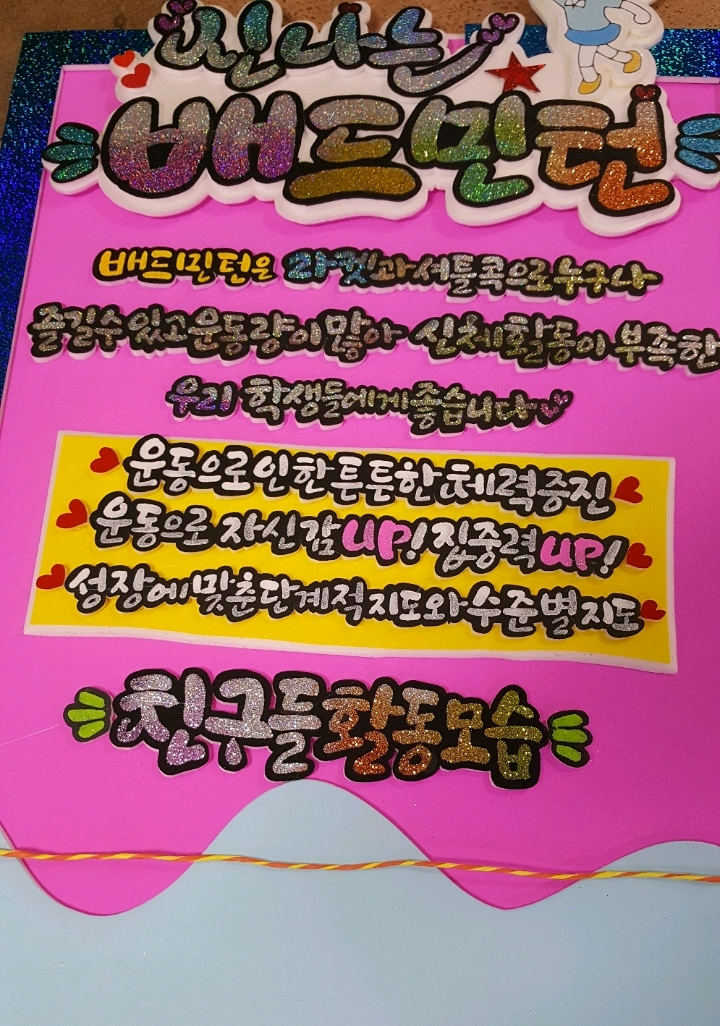 신나는
배드민턴
배드민턴은 라켓과 셔틀콕으로 누구나
즐길수 있고 운동량이 많아 신체활동이 부족한
우리 학생들에게 좋습니다
운동으로 인한 튼튼한 체력증진
운동으로 자신감 UP! 집중력 UP!
성장에 맞춘 단계적 지도와 수준별 지도
친구들 활동모습